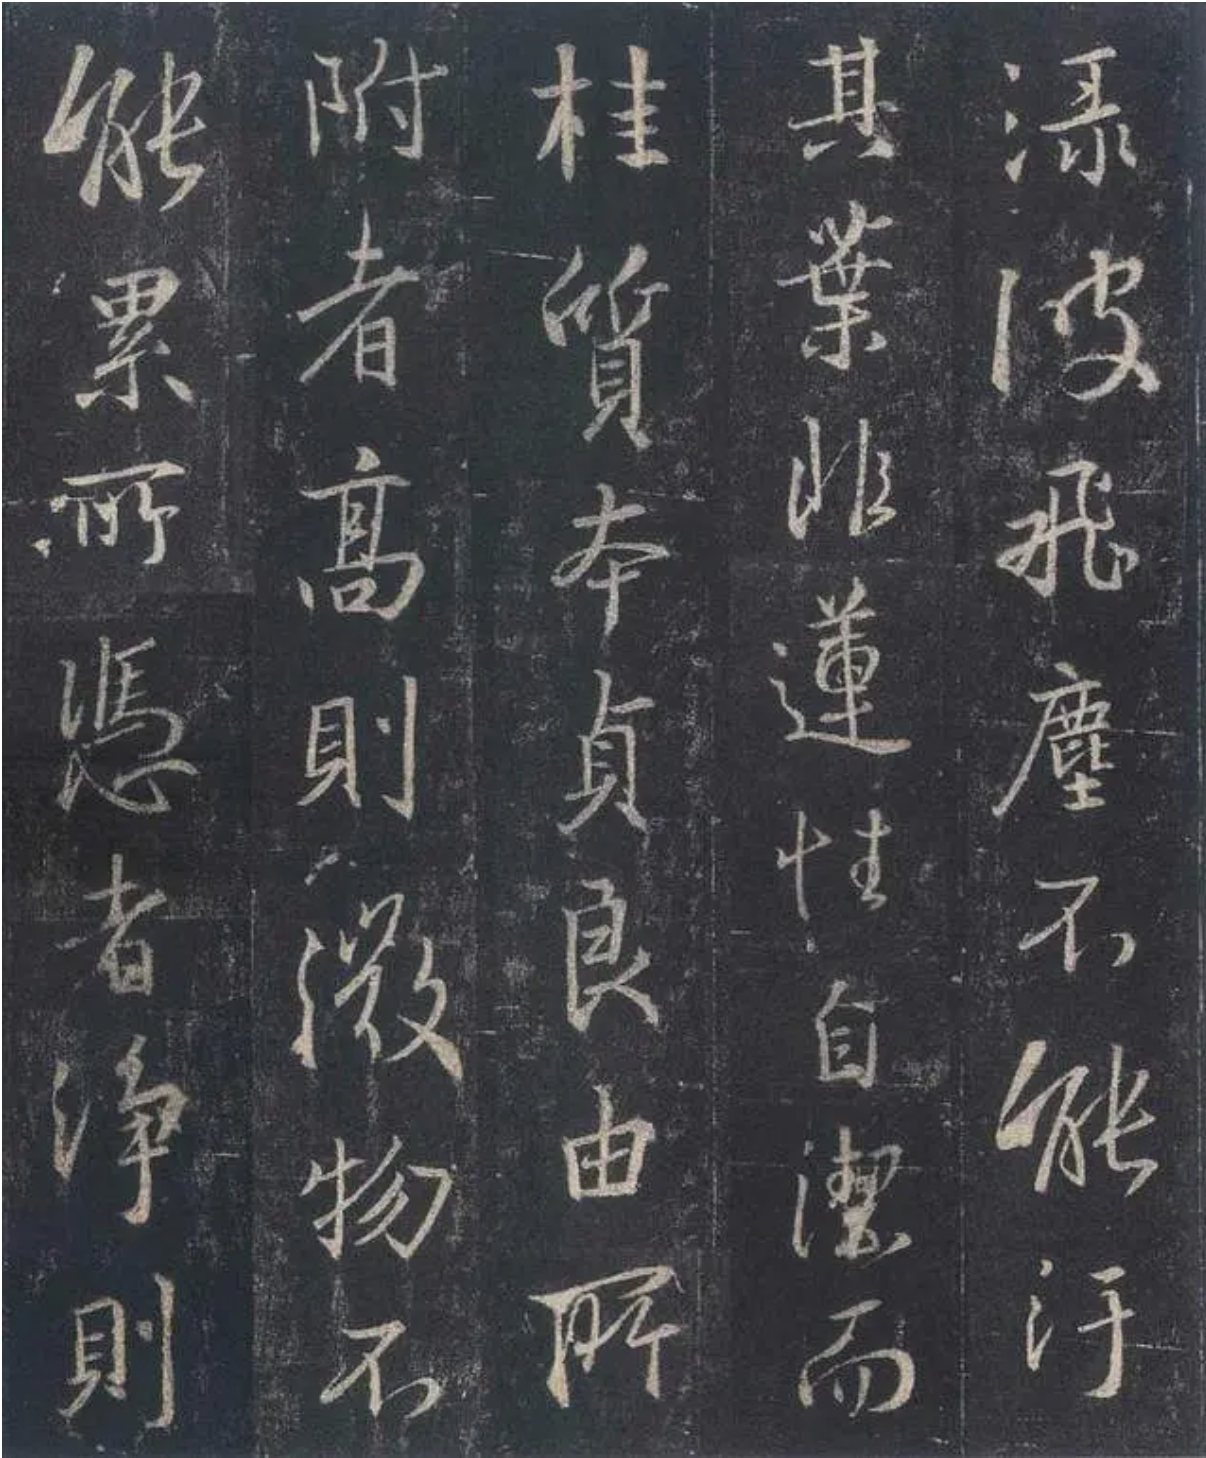 渌波飛塵不能汙
其葉非蓮性自潔而
桂質本貞良由所
附者高則微物不
能累所憑者淨則